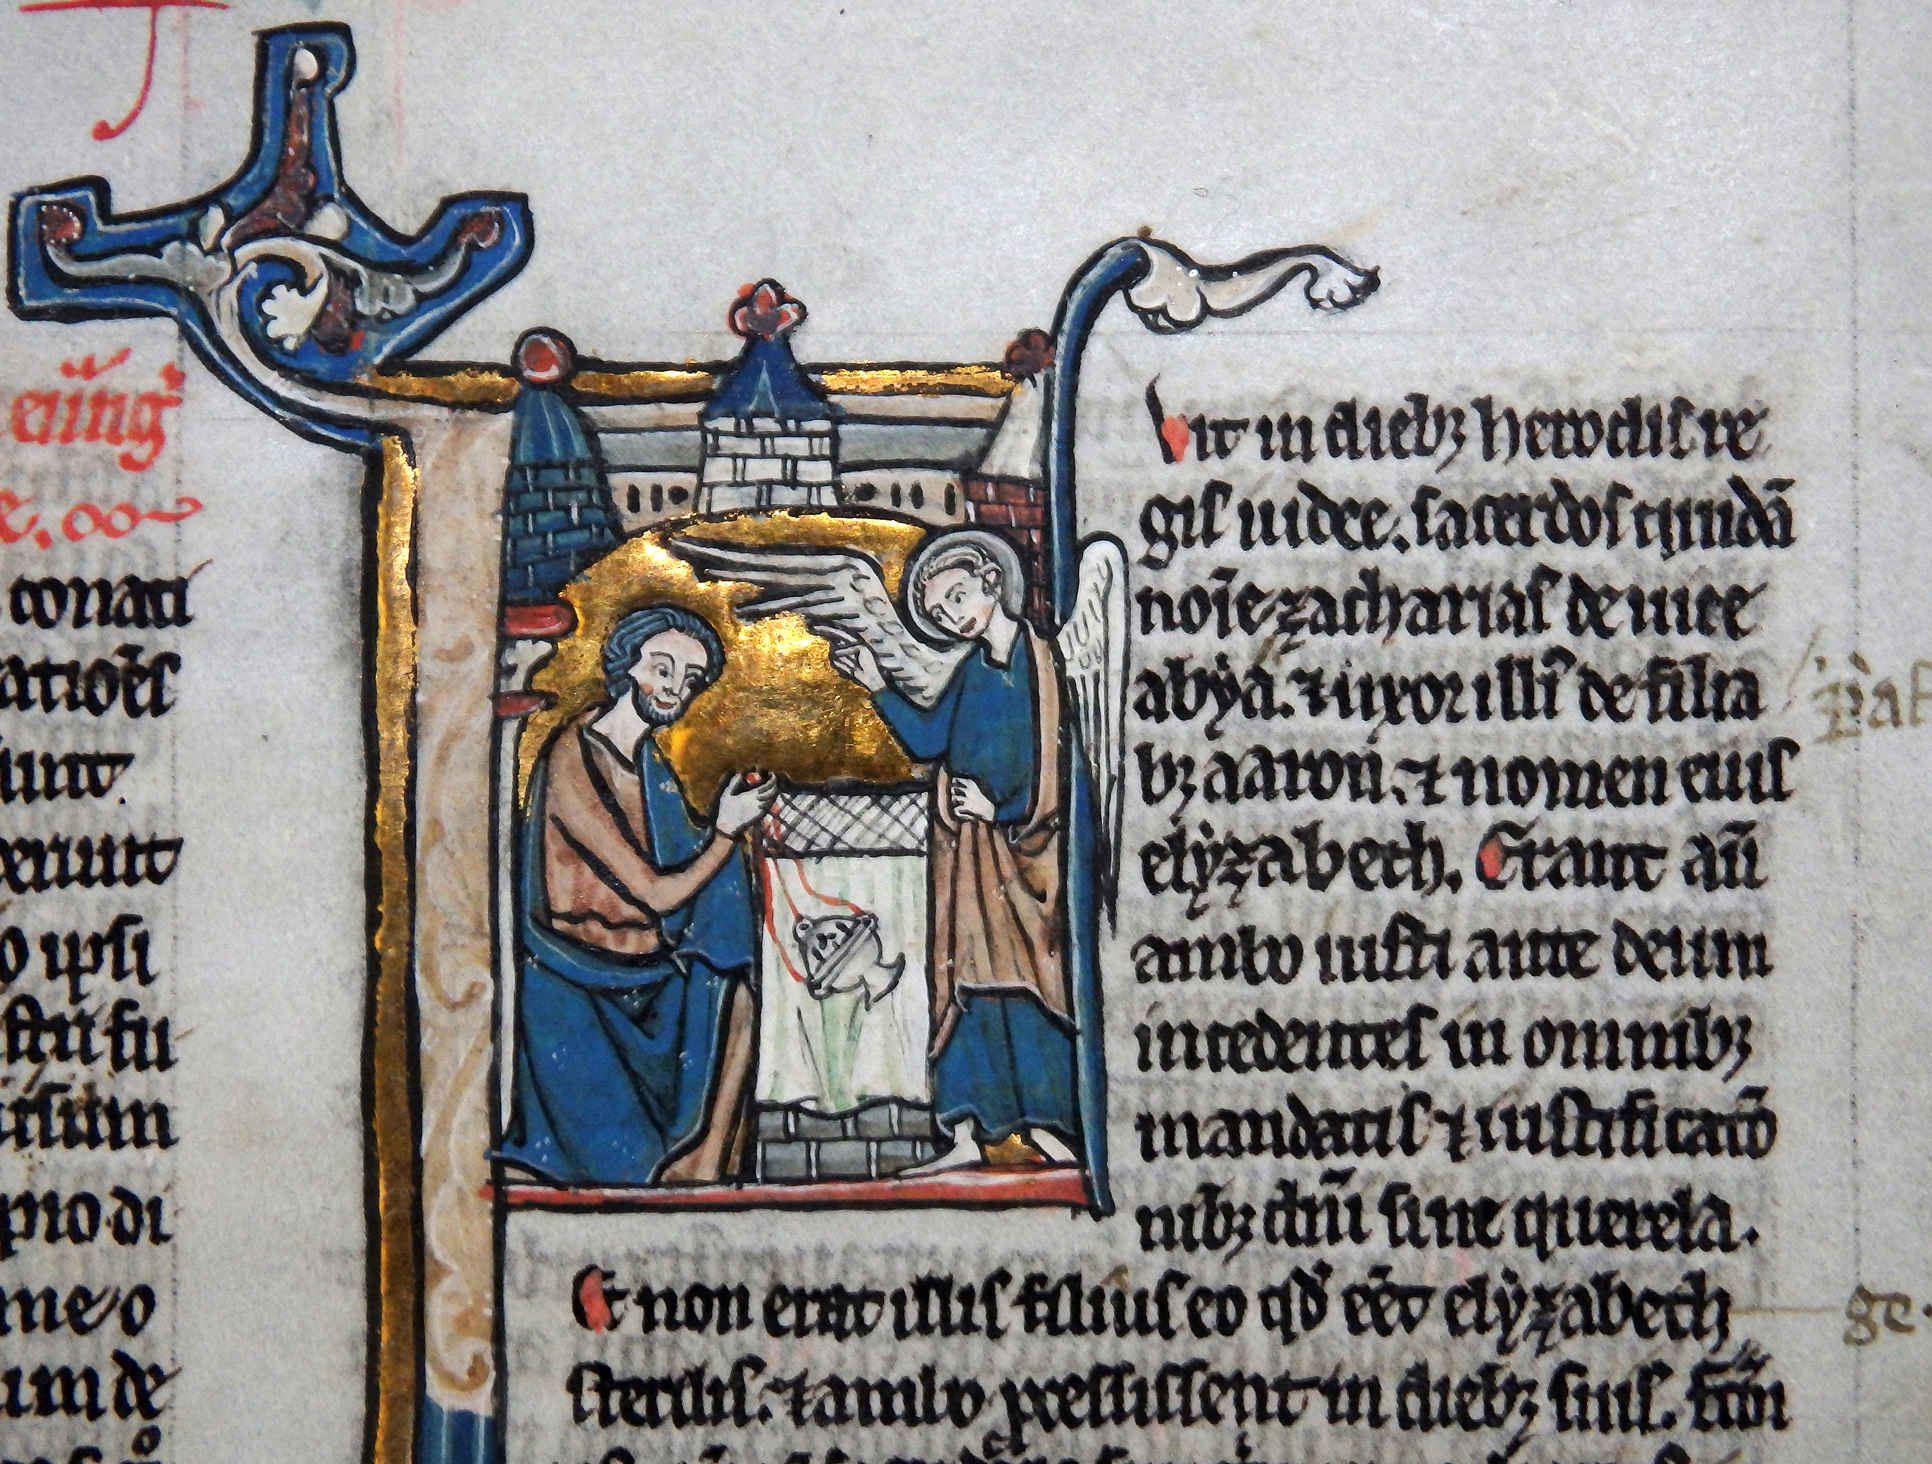 euu̅gͥ
e.
conati
atioēs
unt.
erunt
o ipsi
stri fu
ursum
pio di
me o
um de
F
uit in diebꝫ herodis re
gis iudee. sacerdos quidā
noīe zacharias de uice
abẏa. ⁊ uxor illiꝰ de filia
bꝫ aaron. ⁊ nomen eius
elẏzabeth. Erant aū
ambo iusti ante deum
incedentes in omnibꝫ
mandatis ⁊ iustificatio
nibꝫ dn̄i sine querela.
Et non erat illis filius eo qd̓ eēt elẏzabeth
sterilis. ⁊ ambo p̄cessissent in diebꝫ suis. Fc̄m
ge